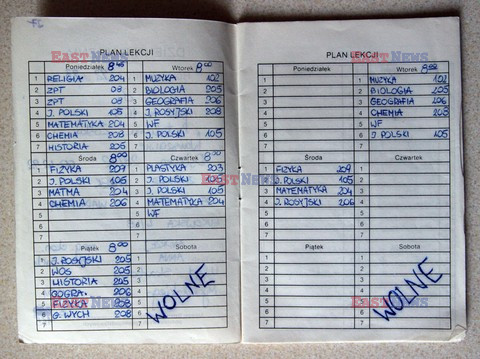 PLAN LEKCJI
Poniedziałek 8 45
1 RELIGIA 204
2 ZPT 08
3 ZPT 08
4 J. POLSKI 105
5 MATEMATYKA 204
6 CHEMIA 208
7 HISTORIA 205
Wtorek 8 00
1 MUZYKA 102
2 BIOLOGIA 205
3 GEOGRAFIA 206
4 J. ROSYJSKI 208
5 WF
6 J. POLSKI 105
7
Środa 8 00
1 FIZYKA 207
2 J. POLSKI 105
3 MATMA 204
4 CHEMIA 206
5
6
7
Czwartek 8 00
1 PLASTYKA 203
2 J. POLSKI 105
3 J. POLSKI 105
4 MATEMATYKA 204
5 WF
6
7
Piątek 8 00
1 J. ROSYJSKI 205
2 WOS 205
3 HISTORIA 205
4 GOGRA. 206
5 FIZYKA 208
6 G. WYCH 208
Sobota
WOLNE
PLAN LEKCJI
Poniedziałek
1
2
3
4
5
6
7
Wtorek
1 MUZYKA 102
2 BIOLOGIA 105
3 GEOGRAFIA 106
4 CHEMIA 208
5 WF
6 J POLSKI 105
7
Środa
1 FIZYKA 209
2 J. POLSKI 105
3 MATEMATYKA 204
4 J. ROSYJSKI 206
5
6
7
Czwartek
1
2
3
4
5
6
7
Piątek
1
2
3
4
5
6
7
Sobota
WOLNE
EAST NEWS
EAST NEWS
EAST NEWS
EAST NEWS
EAST NEWS
EAST NEWS